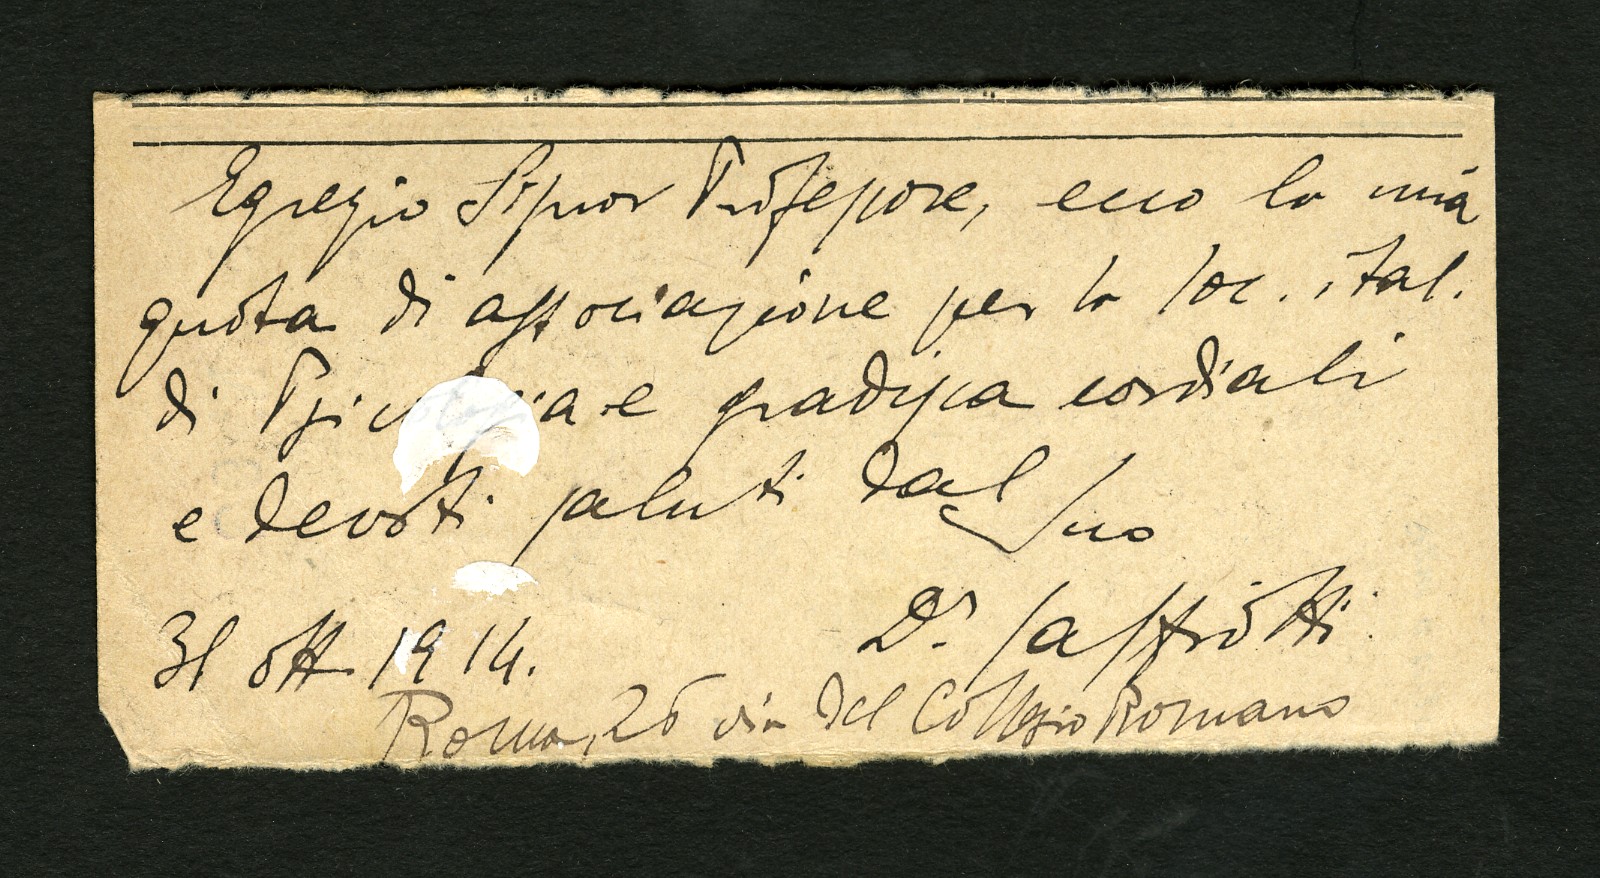 Egregio Signor Professore, ecco la mia
quota di associazione per la Soc. ital.
di Psicologia e gradisca cordiali
e devoti saluti dal Suo
Dr. Saffiotti
31 ott 1914.
Roma, 26 via del Collegio Romano